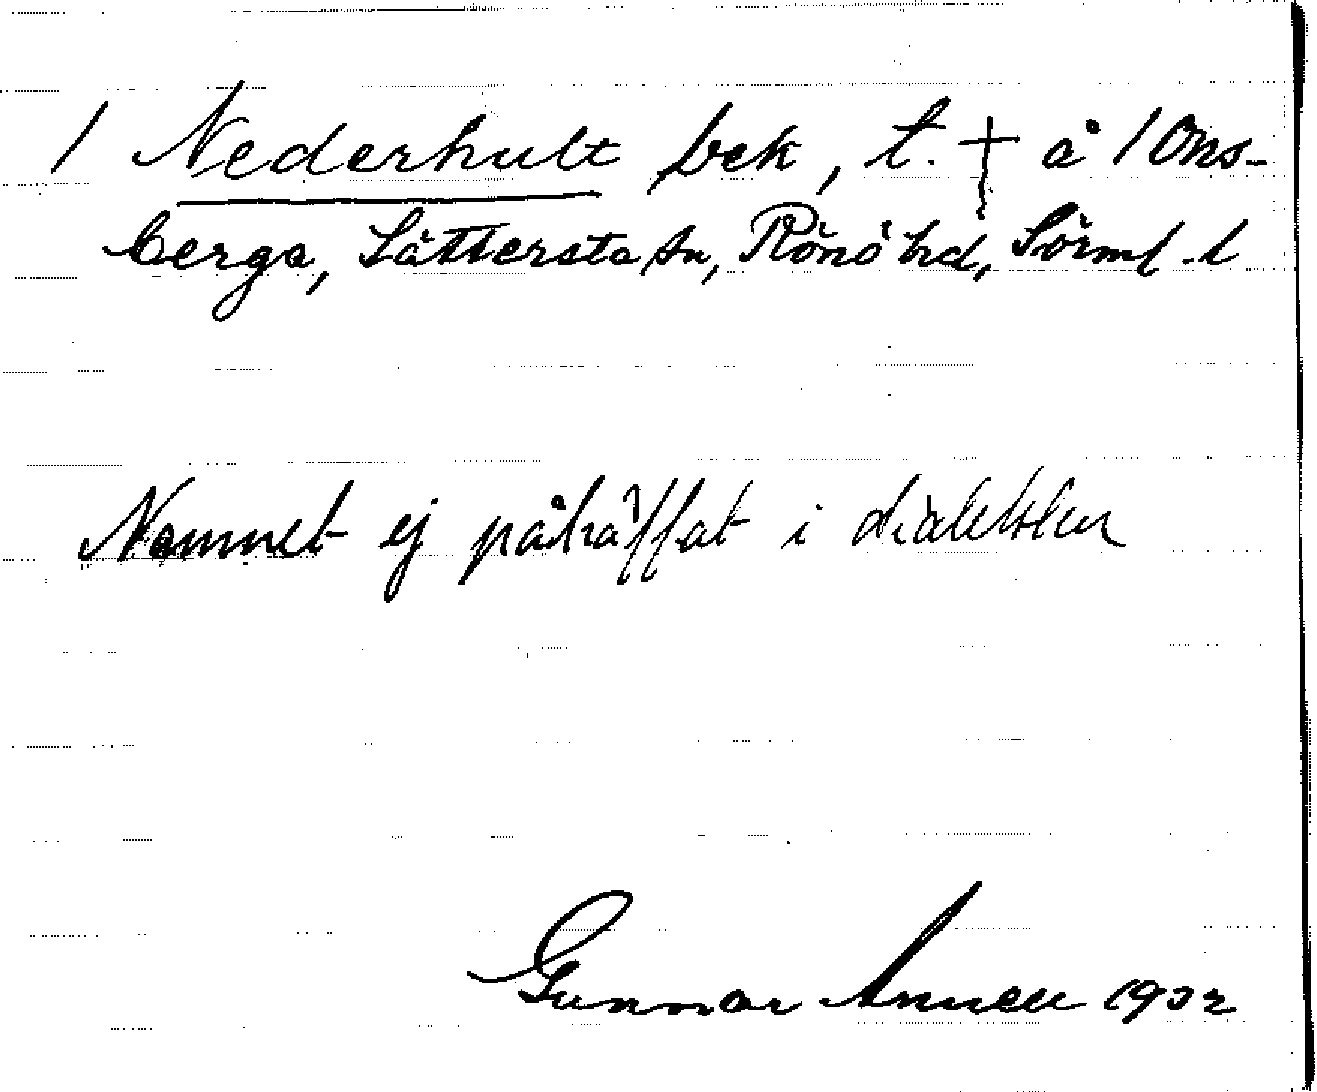 1 Nederhult bek, t. † å 1 Ons-
berga, Lättersta sn, Rönö hd, Sörml. l
Namnet ej påträffat i dialekten
Gunnar Annell 1932